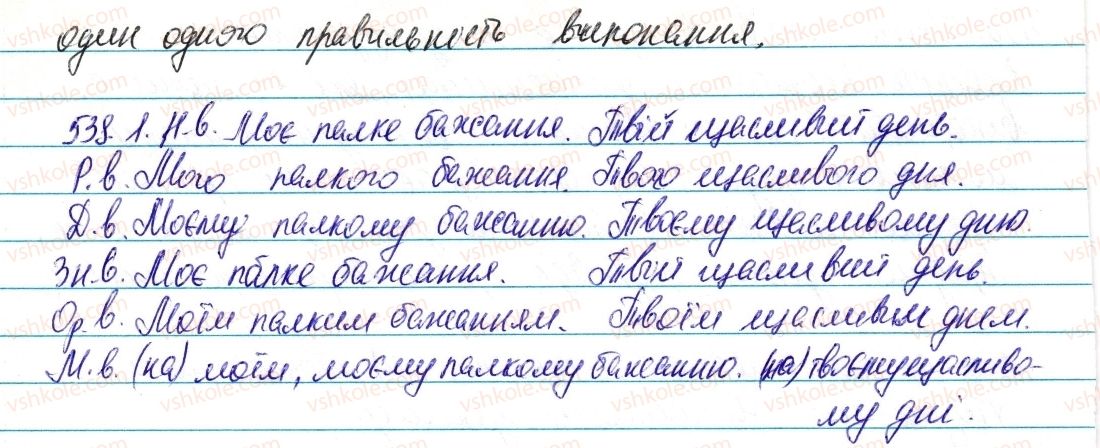 один одного правильність виконання.
539. 1. Н.в. Моє палке бажання. Твій щасливий день.
Р.в. Мого палкого бажання. Твого щасливого дня.
Д.в. Моєму палкому бажанню. Твоєму щасливому дню.
Зн.в. Моє палке бажання. Твій щасливий день.
Ор.в. Моїм палким бажанням. Твоїм щасливим днем.
М.в. (на) моїм, моєму палкому бажанню. (на) твоєму щасливо-
му дні.